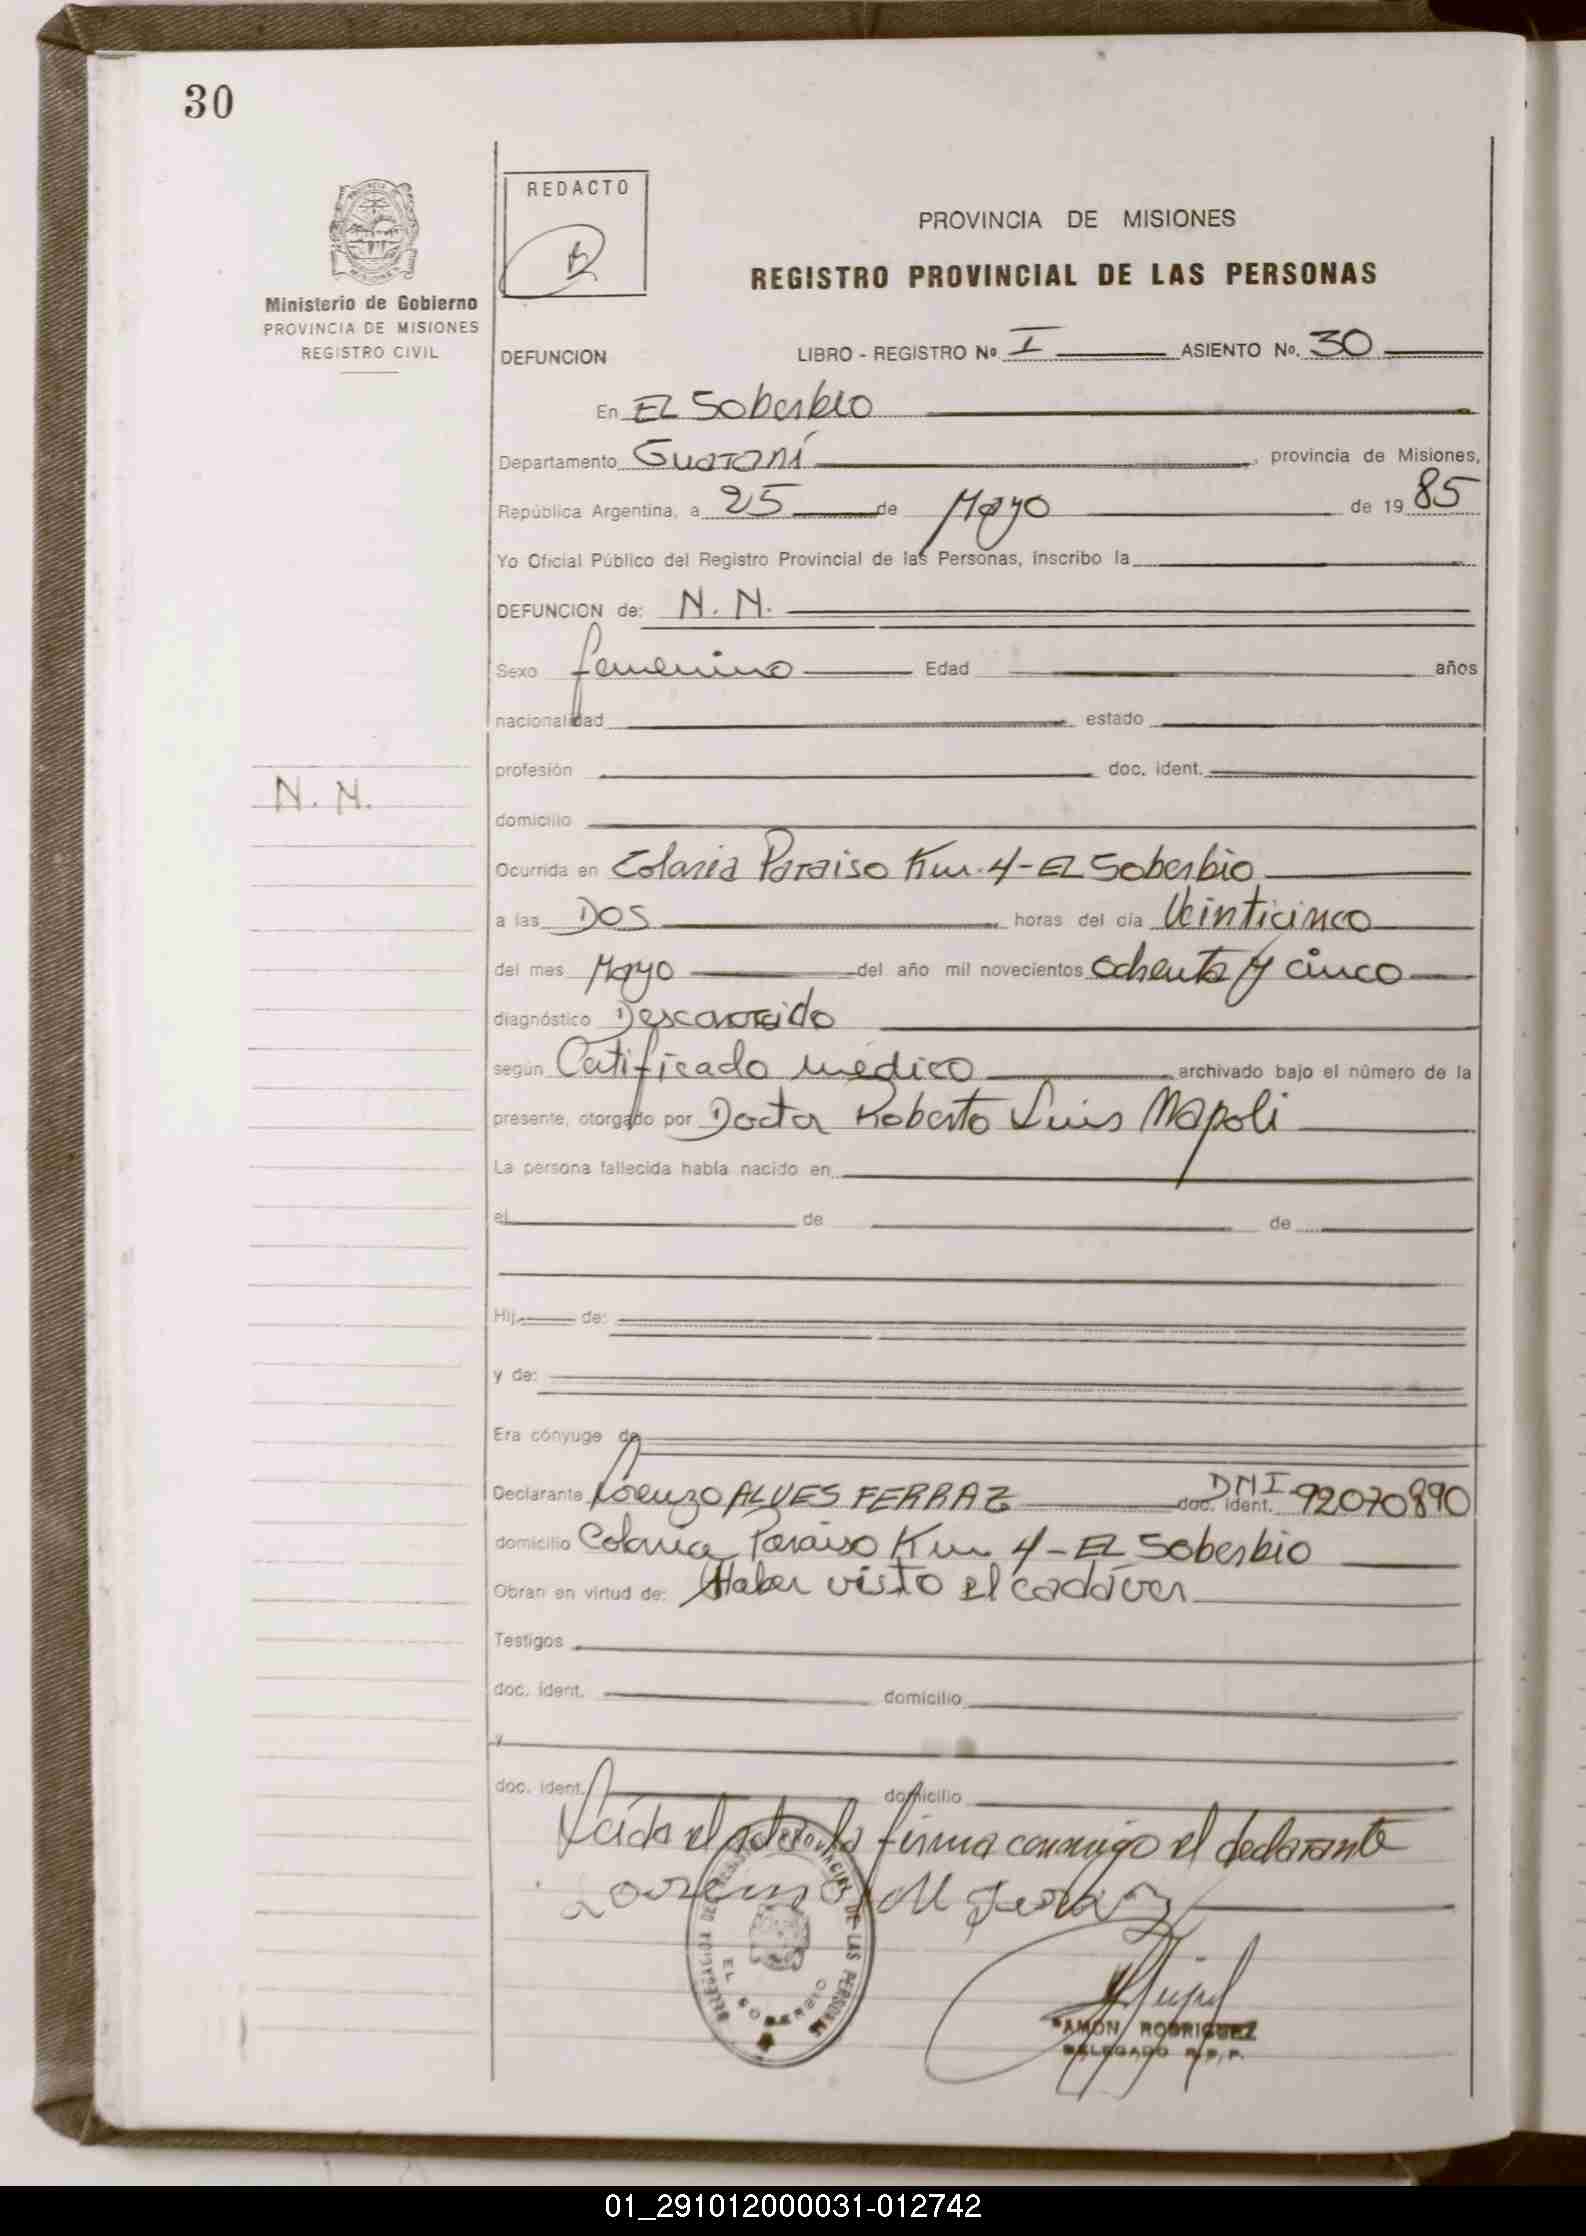 30
REDACTO
PROVINCIA DE MISIONES
REGISTRO PROVINCIAL DE LAS PERSONAS
Ministerio de Gobierno
PROVINCIA DE MISIONES
REGISTRO CIVIL
DEFUNCION LIBRO - REGISTRO Nº I ASIENTO Nº. 30
En EL Soberbio
Departamento Guaraní, provincia de Misiones,
República Argentina, a 25 de Mayo de 1985
Yo Oficial Público del Registro Provincial de las Personas, inscribo la
DEFUNCION de: N. N.
Sexo femenino Edad años
nacionalidad estado
profesión doc. ident.
N. N.
domicilio
Ocurrida en Colonia Paraiso Km. 4 - EL Soberbio
a las DOS horas del día Veinticinco
del mes Mayo del año mil novecientos ochenta y cinco
diagnóstico Desconocido
según Certificado médico archivado bajo el número de la
presente, otorgado por Doctor Roberto Luis Napoli
La persona fallecida había nacido en
el de de
Hij de:
y de:
Era cónyuge de
Declarante Lorenzo ALVES FERRAZ doc. ident. DNI 92070890
domicilio Colonia Paraiso Km 4 - EL Soberbio
Obran en virtud de: Haber visto el cadáver
Testigos
doc. ident. domicilio
y
doc. ident. domicilio
Leída el acta la firma conmigo el declarante
DELEGACION DEL REGISTRO PROVINCIAL DE LAS PERSONAS
EL SOBERBIO
RAMON RODRIGUEZ
DELEGADO R.P.P.
01_291012000031-012742